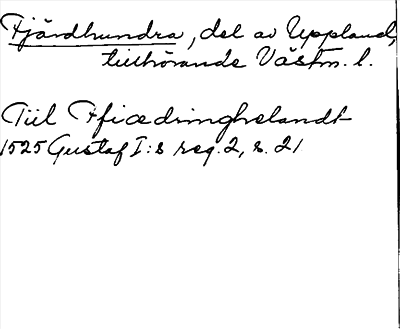 Fjärdhundra, del av Uppland,
tillhörande Västm. l.
Till Ffiædringhelandt
1525 Gustaf I:s reg. 2, s. 21